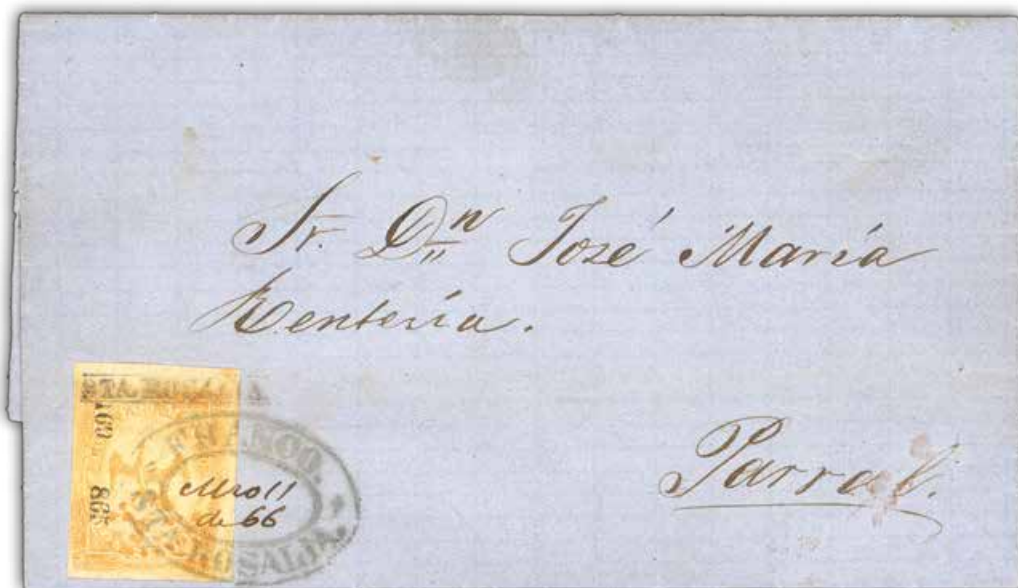 Sr. Dn José María
Rentería.
Parral.
STA. ROSALIA
169 865
FRANCO.
Mzo 11
de 66
STA. ROSALIA.